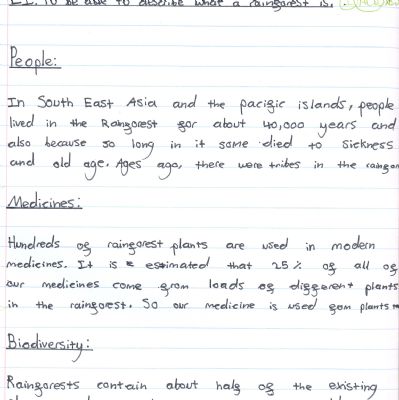 L.I. To be able to describe what a rainforest is.
People:
In South East Asia and the pacific islands, people
lived in the Rainforest for about 40,000 years and
also because so long in it some died to sickness
and old age. Ages ago, there were tribes in the
Medicines:
Hundreds of rainforest plants are used in modern
medicines. It is estimated that 25% of all of
our medicines come from loads of different plants
in the rainforest. So our medicine is used fom plants
Biodiversity:
Rainforests contain about half of the existing